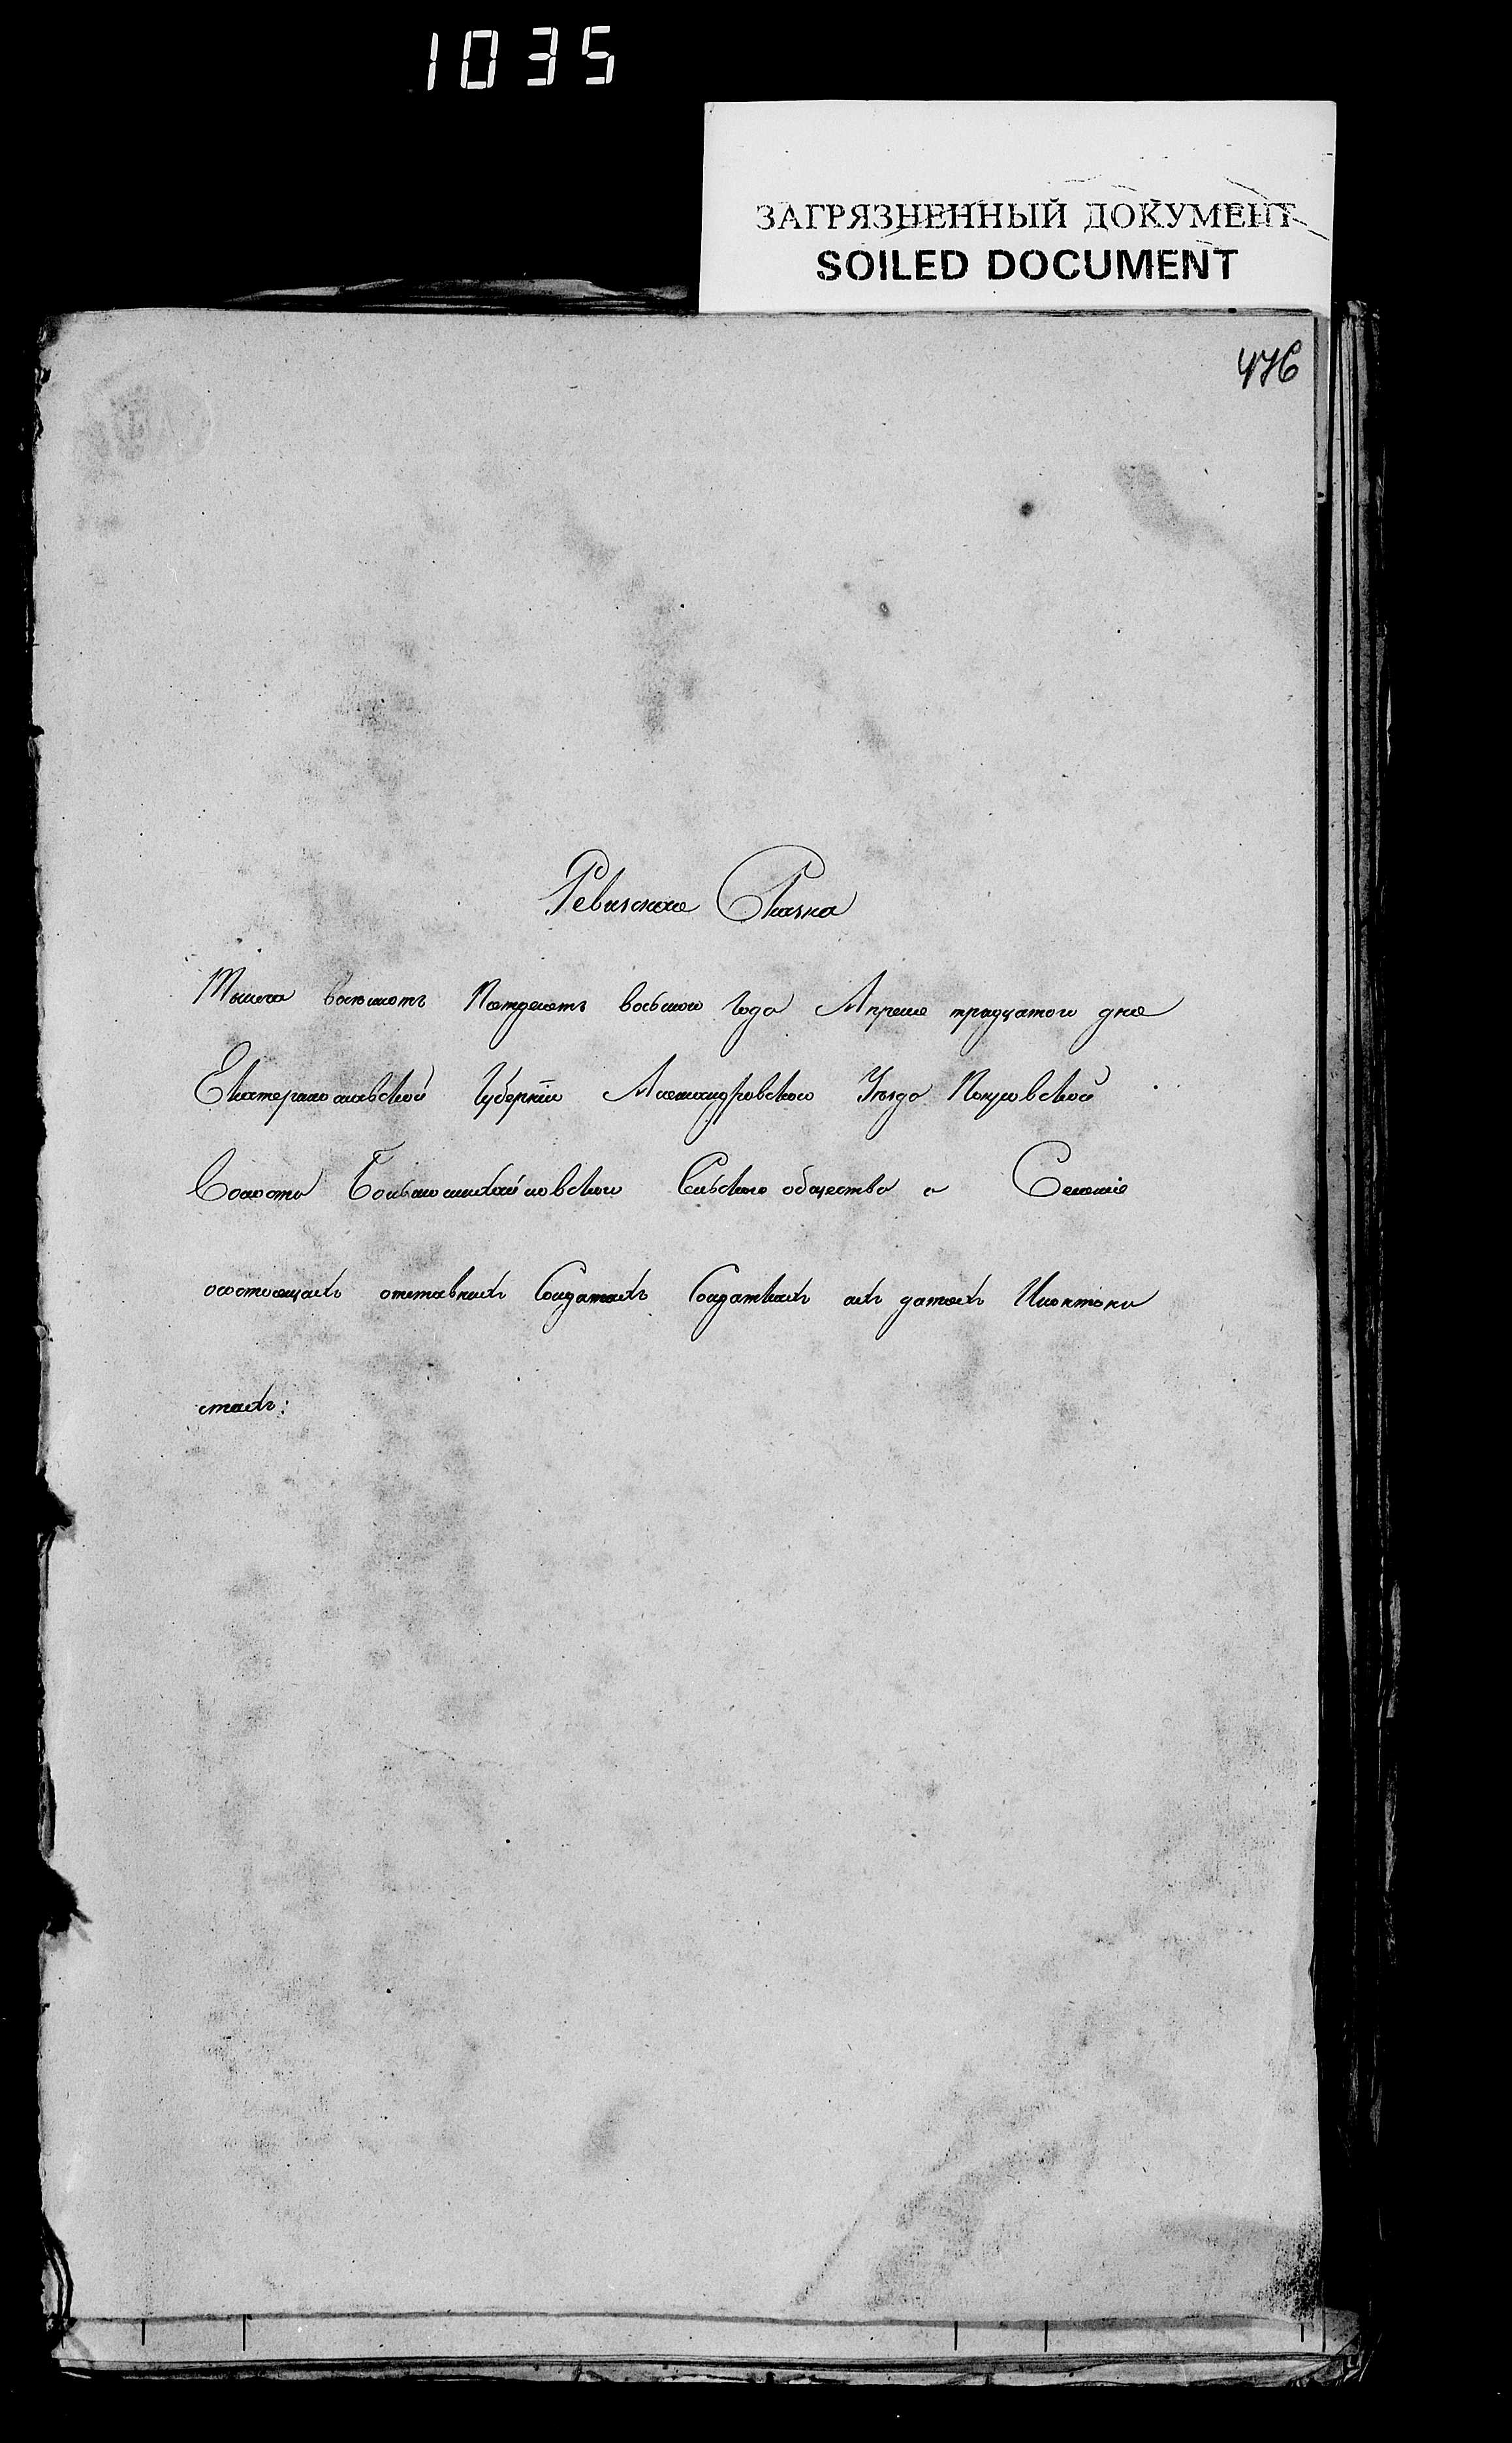 1035
ЗАГРЯЗНЕННЫЙ ДОКУМЕНТ
SOILED DOCUMENT
476
Ревизская Сказка
Тысяча восемсотъ Пятдесятъ восьмого года Апреля тридцатого дня
Екатеринославской Губерніи Александровского Уѣзда Покровской
Волости Большемихайловского Сельского общества о Селеніе
состоящихъ отставныхъ Солдатахъ Солдаткахъ ихъ дѣтяхъ